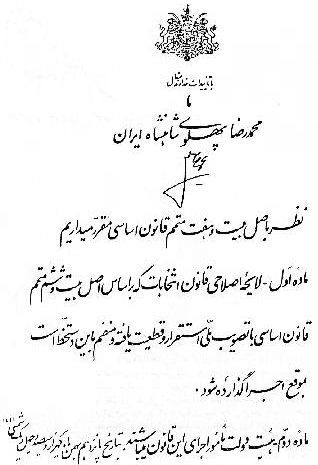 با تأییدات خداوند متعال
ما
محمدرضا پهلوی شاهنشاه ایران
نظر باصل بیست و هفت متمم قانون اساسی مقرر میداریم
ماده اول - لایحه اصلاحی قانون انتخابات که بر اساس اصل بیست و ششم متمم
قانون اساسی با تصویب ملی استقرار و قطعیت یافته و منضم باین دستخط است
بموقع اجرا گذارده شود .
ماده دوم - هیئت دولت مأمور اجرای این قانون میباشند . بتاریخ پانزدهم بهمن ماه یکهزار و سیصد و چهل و یک شمسی ۱۳۴۱